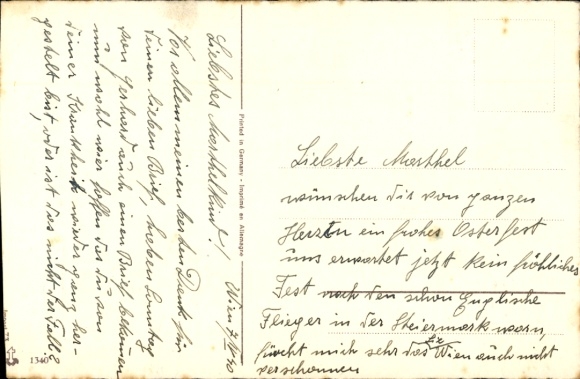 Wien 7/4.40
Liebstes Marthelkind!
Vor allem meinen besten Dank für
deinen lieben Brief, haben Sonntag
von Gerhard auch einen Brief bekommen
und wohl wier hoffen das du von
deiner Krankheit wieder ganz her-
gestelt bist, oder ist dies nicht der Fall?
Printed in Germany - Imprimé en Allemagne
1340
Liebste Marthel
wünschen dir von ganzen
Herzen ein frohes Osterfest
uns erwartet jetzt kein fröhliches
Fest nach den schon Englische
Flieger in der Steiermark warn,
fürcht mich sehr das Wien auch nicht
verschonnen